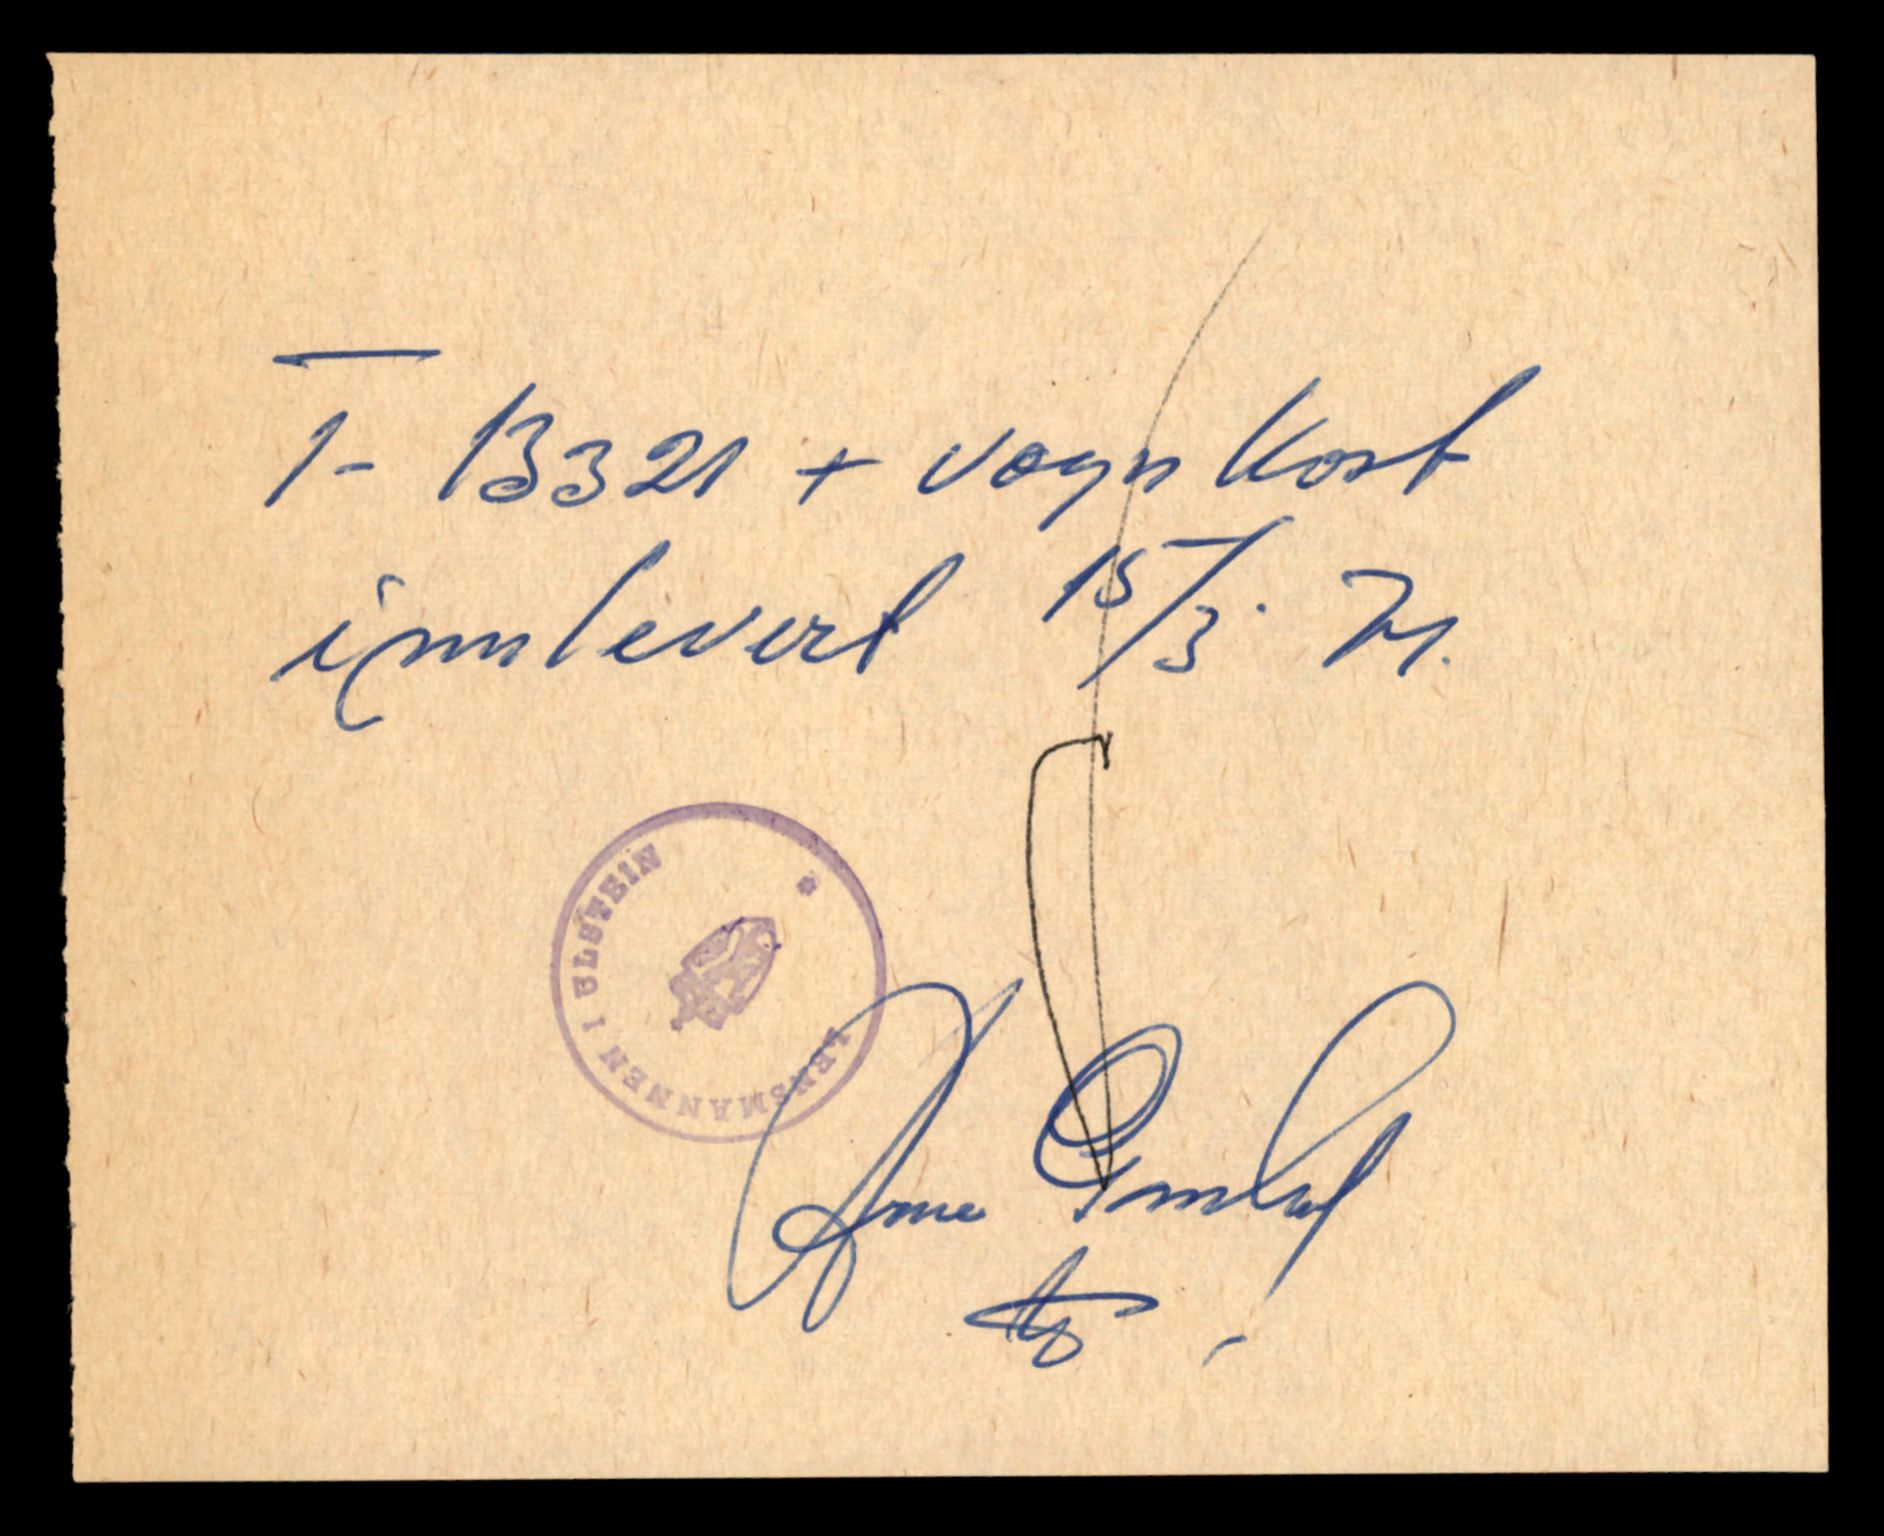 T- 13321 + vognkort
innlevert 15/3. 71.
LENSMANNEN I ULSTEIN
Arne